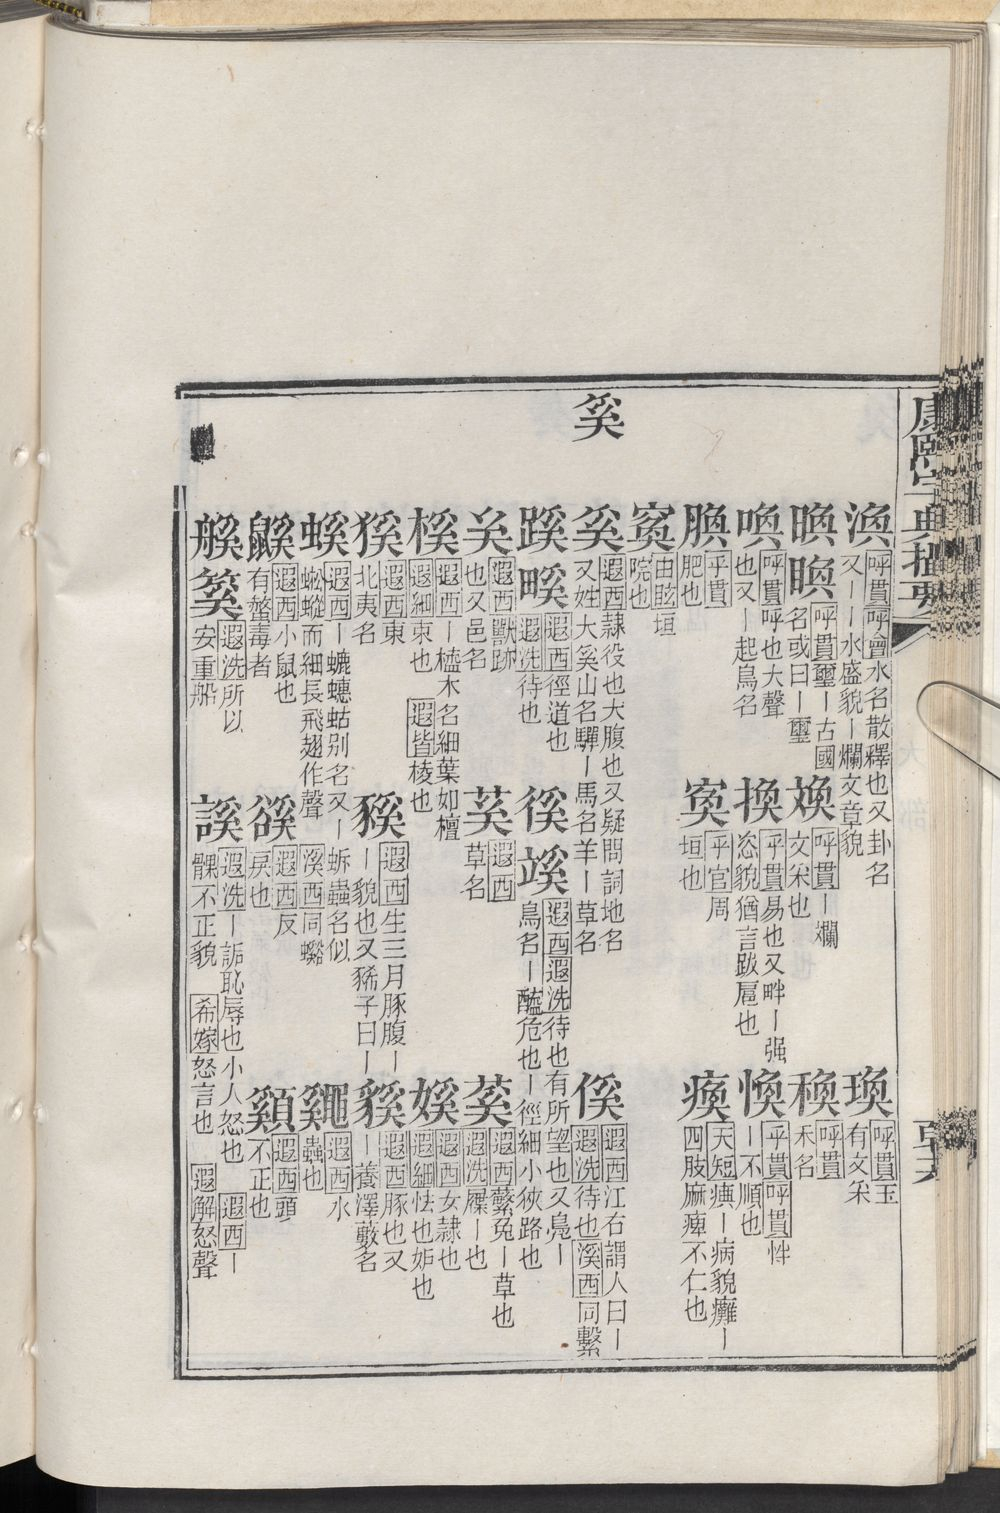 康熙字典撮要
奚
渙 呼貫 呼會 水名散釋也又卦名
又丨丨水盛貌丨爛文章貌
瑍 呼貫 玉
有文采
㬇 𥇰 呼貫 璽丨古國
名或曰丨璽
焕 呼貫 丨爛
文采也
䆠 呼貫
禾名
喚 呼貫 呼也大聲
也又丨起鳥名
換 乎貫 易也又畔丨强
恣貌猶言跋扈也
愌 乎貫 呼貫 怑
丨不順也
腴 乎貫
肥也
寏 乎官 周
垣也
瘓 天短 㾕丨病貌癱丨
四肢麻痺不仁也
由眩 垣
院也
奚 遐西 隷役也大腹也又疑問詞地名
又姓大奚山名驒丨馬名羊丨草名
傒 遐西 江右謂人曰丨
遐洗 待也 溪西 同繫
蹊 𨂂 遐西 徑道也
遐洗 待也
徯 𧯋 遐西 遐洗 待也有所望也又鳧丨
鳥名丨醯危也丨徑細小狹路也
遐西 獸跡
也又邑名
遐西
草名
蒵 遐西 虋兔丨草也
遐洗 履丨也
榽 遐西 丨橀木名細葉如檀
遐細 朿也 遐皆 棱也
嫨 遐西 女隷也
遐細 怯也妒也
猰 遐西 東
北夷名
豯 遐西 生三月豚腹丨
丨貌也又豨子曰丨
貕 遐西 豚也又
丨養澤藪名
螇 遐西 丨螰蟪蛄别名又丨蚸蟲名似
蜙蝑而細長飛翅作聲 溪西 同蠫
鼷 遐西 水
蟲也
鼷 遐西 小鼠也
有螫毒者
谿 遐西 反
戾也
䫔 遐西 頭
不正也
艞 䈪 遐洗 所以
安重船
謑 遐洗 丨詬恥辱也小人怒也 遐西 丨
髁不正貌 希嫁 怒言也 遐解 怒聲